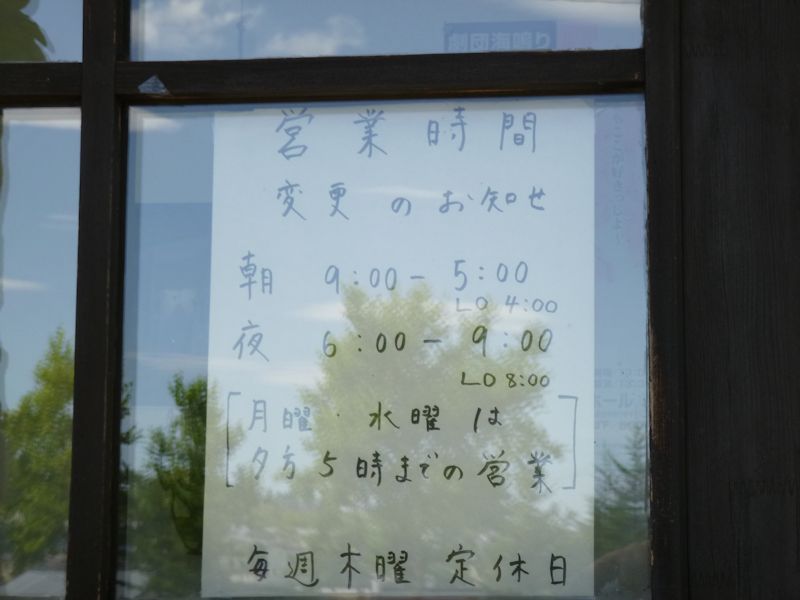 劇団海鳴り
営業時間
変更のお知せ
朝 9:00 - 5:00
LO 4:00
夜 6:00 - 9:00
LO 8:00
[月曜・水曜は
夕方5時までの営業]
毎週木曜 定休日